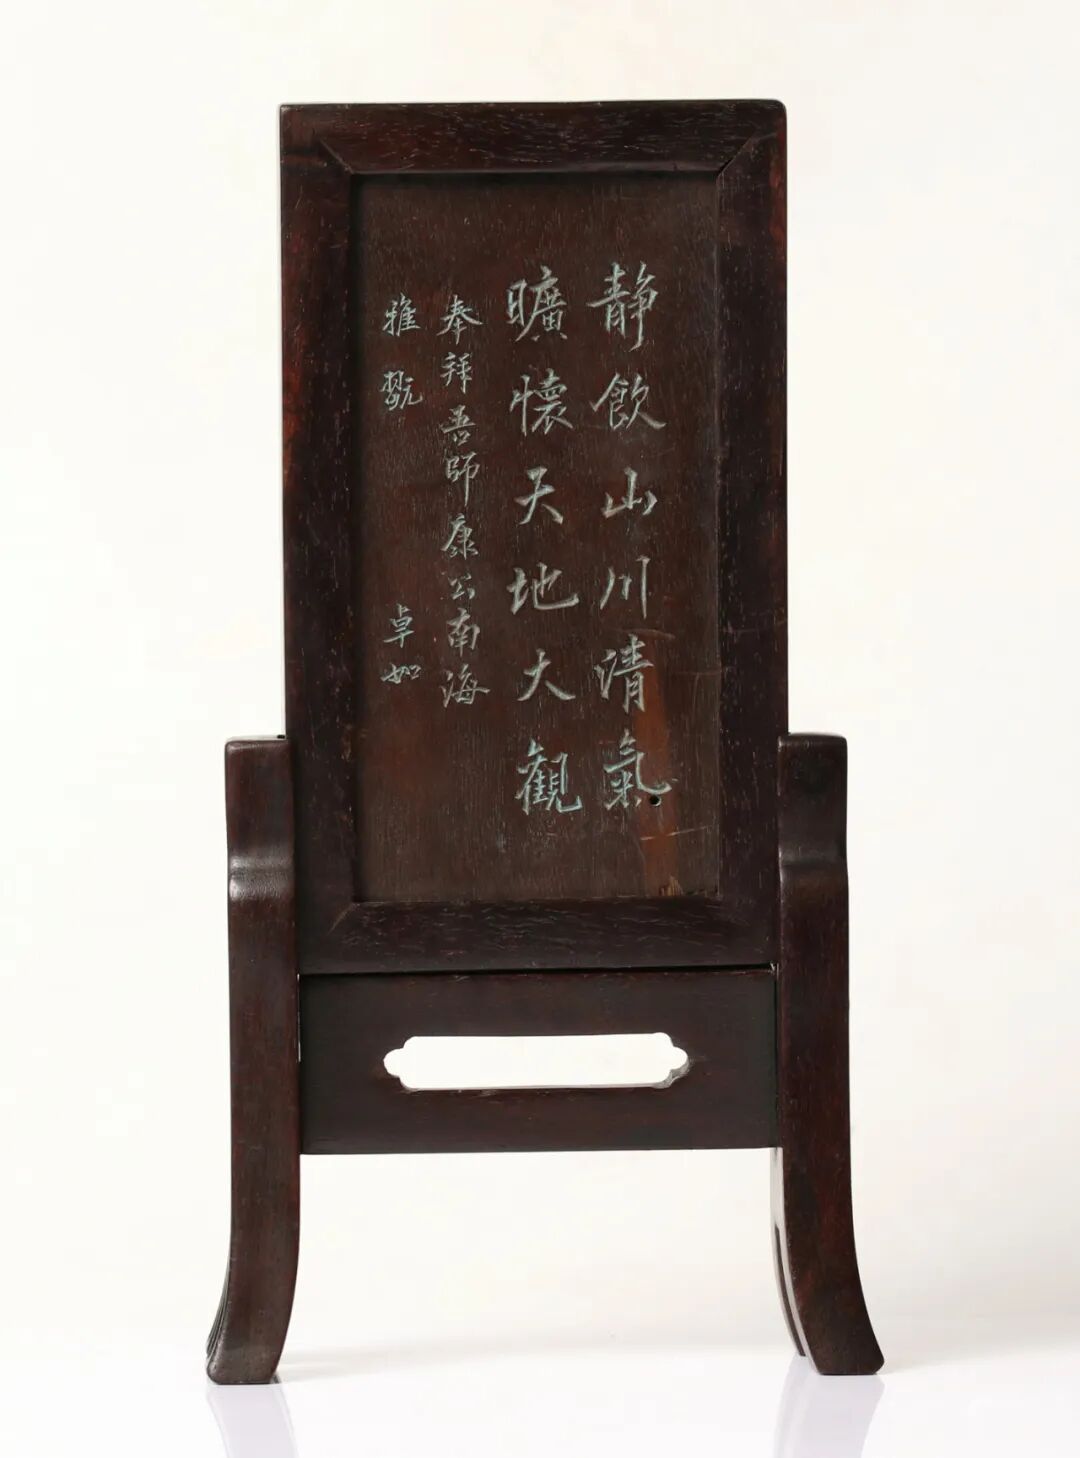 静飲山川清氣
曠懷天地大觀
奉拜吾師康公南海
雅翫
卓如